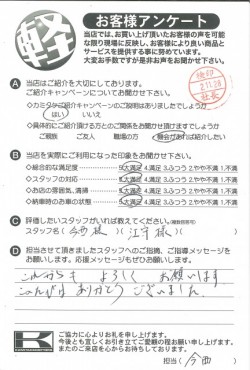 軽
お客様アンケート
当店では、お買い上げ頂いたお客様の声を可能
な限り現場に反映し、お客様により良い商品と
サービスを提供する事に努めています。
大変お手数ですが是非お声をお聞かせ下さい。
A 当店はご紹介を大切にしております。
ご紹介キャンペーンについてお聞かせ下さい。
はい いいえ
◇具体的にご紹介頂ける方とのご関係をお聞かせ頂けますでしょうか
ご親族 ご友人 職場の方 機会があれば紹介したい
B 当店を実際にご利用になった印象をお聞かせ下さい。
◇総合的な満足度 5.大満足 4.満足 3.ふつう 2.やや不満 1.不満
◇スタッフの対応 5.大満足 4.満足 3.ふつう 2.やや不満 1.不満
◇お店の雰囲気、清掃 5.大満足 4.満足 3.ふつう 2.やや不満 1.不満
◇納車時のお車の状態 5.大満足 4.満足 3.ふつう 2.やや不満 1.不満
C 評価したいスタッフがいれば教えてください。
スタッフ名( 今西様 )(
D 担当させて頂きましたスタッフへのご指摘、ご指導メッセージを
お願いします。応援メッセージもぜひお願いします。
これからも よろしく お願いします
このたびは ありがとう ございました
K
ご協力に心よりお礼を申し上げます。
今後とも宜しくお引き立てご愛顧の程お願い申し上げます。
またのご来店を心からお待ちしております。
担当( 今西 )